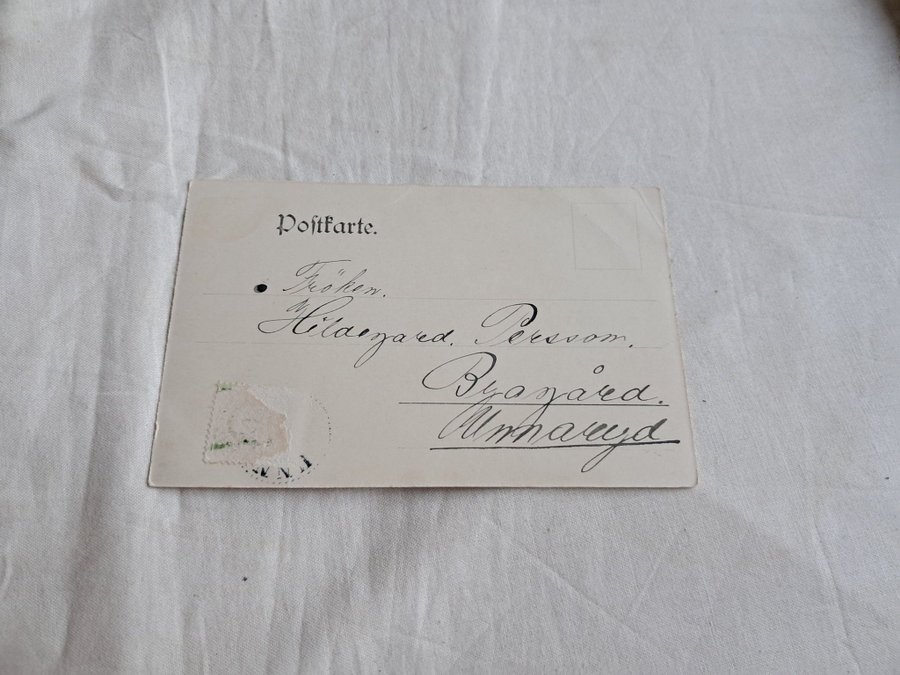 Postkarte.
Fröken.
Hildegard. Persson.
Bygård.
Unnaryd